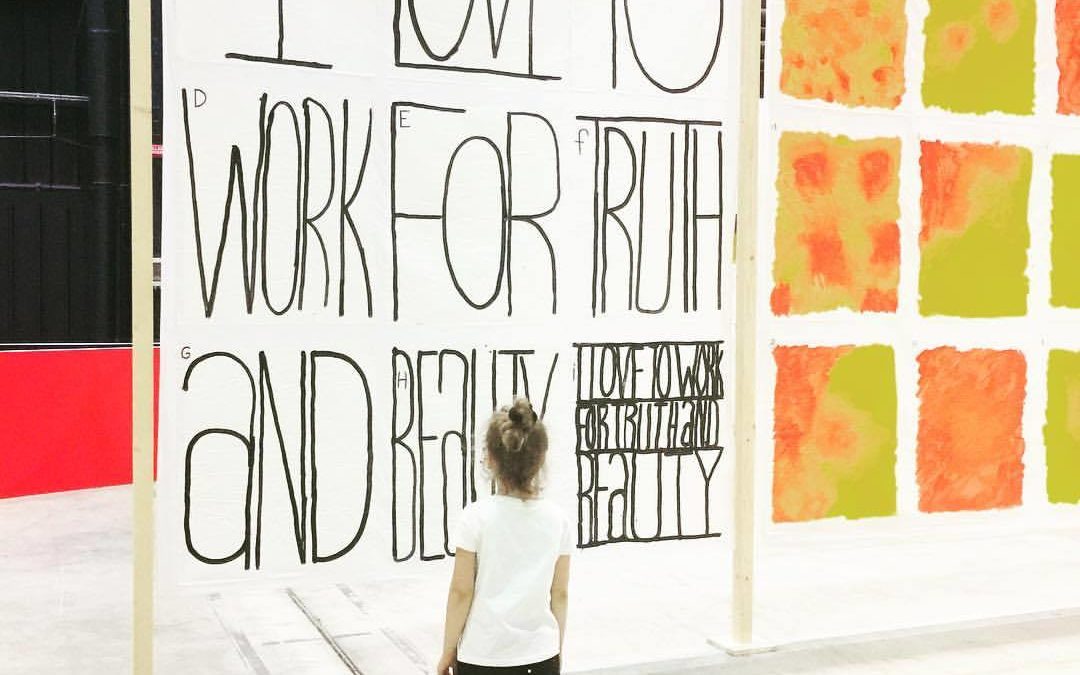 I LOVE TO
D E f
WORK FOR TRUTH
G H i
aND BEaUTY
I LOVE TO WORK
FOR TRUTH aND
BEaUTY